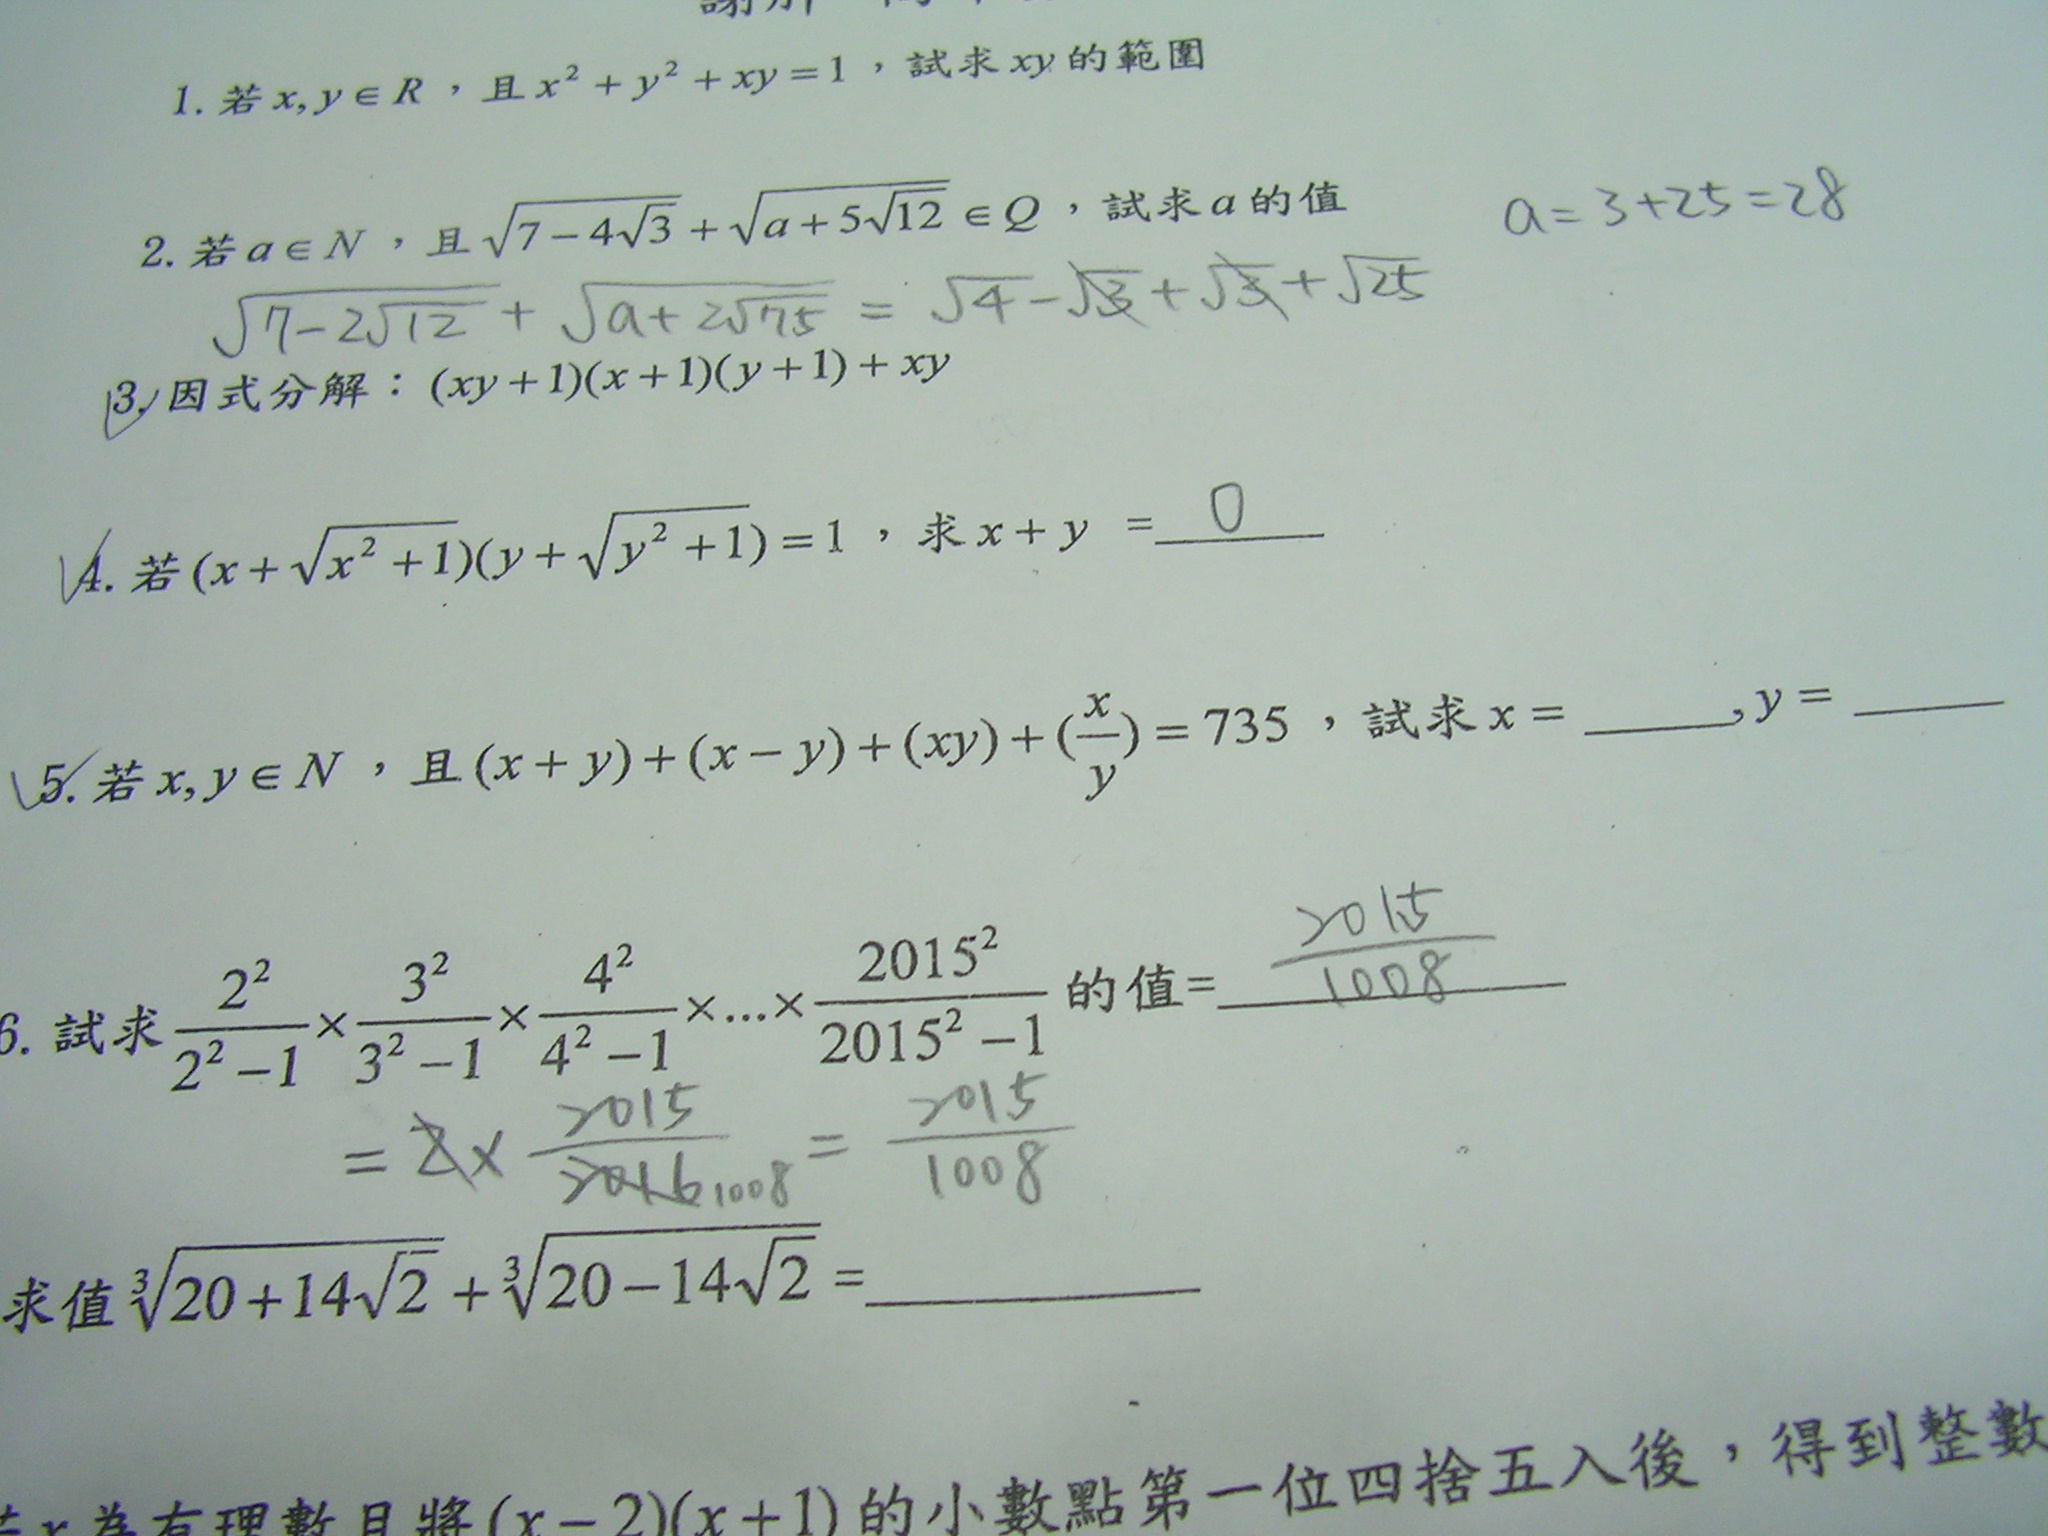 1. 若 x, y ∈ R，且 x² + y² + xy = 1，試求 xy 的範圍
2. 若 a ∈ N，且 √(7 − 4√3) + √(a + 5√12) ∈ Q，試求 a 的值 a = 3 + 25 = 28
√(7 − 2√12) + √(a + 2√75) = √4 − √3 + √3 + √25
3. 因式分解：(xy + 1)(x + 1)(y + 1) + xy
4. 若 (x + √(x² + 1))(y + √(y² + 1)) = 1，求 x + y = 0
5. 若 x, y ∈ N，且 (x + y) + (x − y) + (xy) + (x/y) = 735，試求 x = ____, y = ____
6. 試求 2²/(2² − 1) × 3²/(3² − 1) × 4²/(4² − 1) × ... × 2015²/(2015² − 1) 的值 = 2015/1008
= 2 × 2015/2016 1008 = 2015/1008
求值 ∛(20 + 14√2) + ∛(20 − 14√2) = ____
x 為有理數且將 (x − 2)(x + 1) 的小數點第一位四捨五入後，得到整數